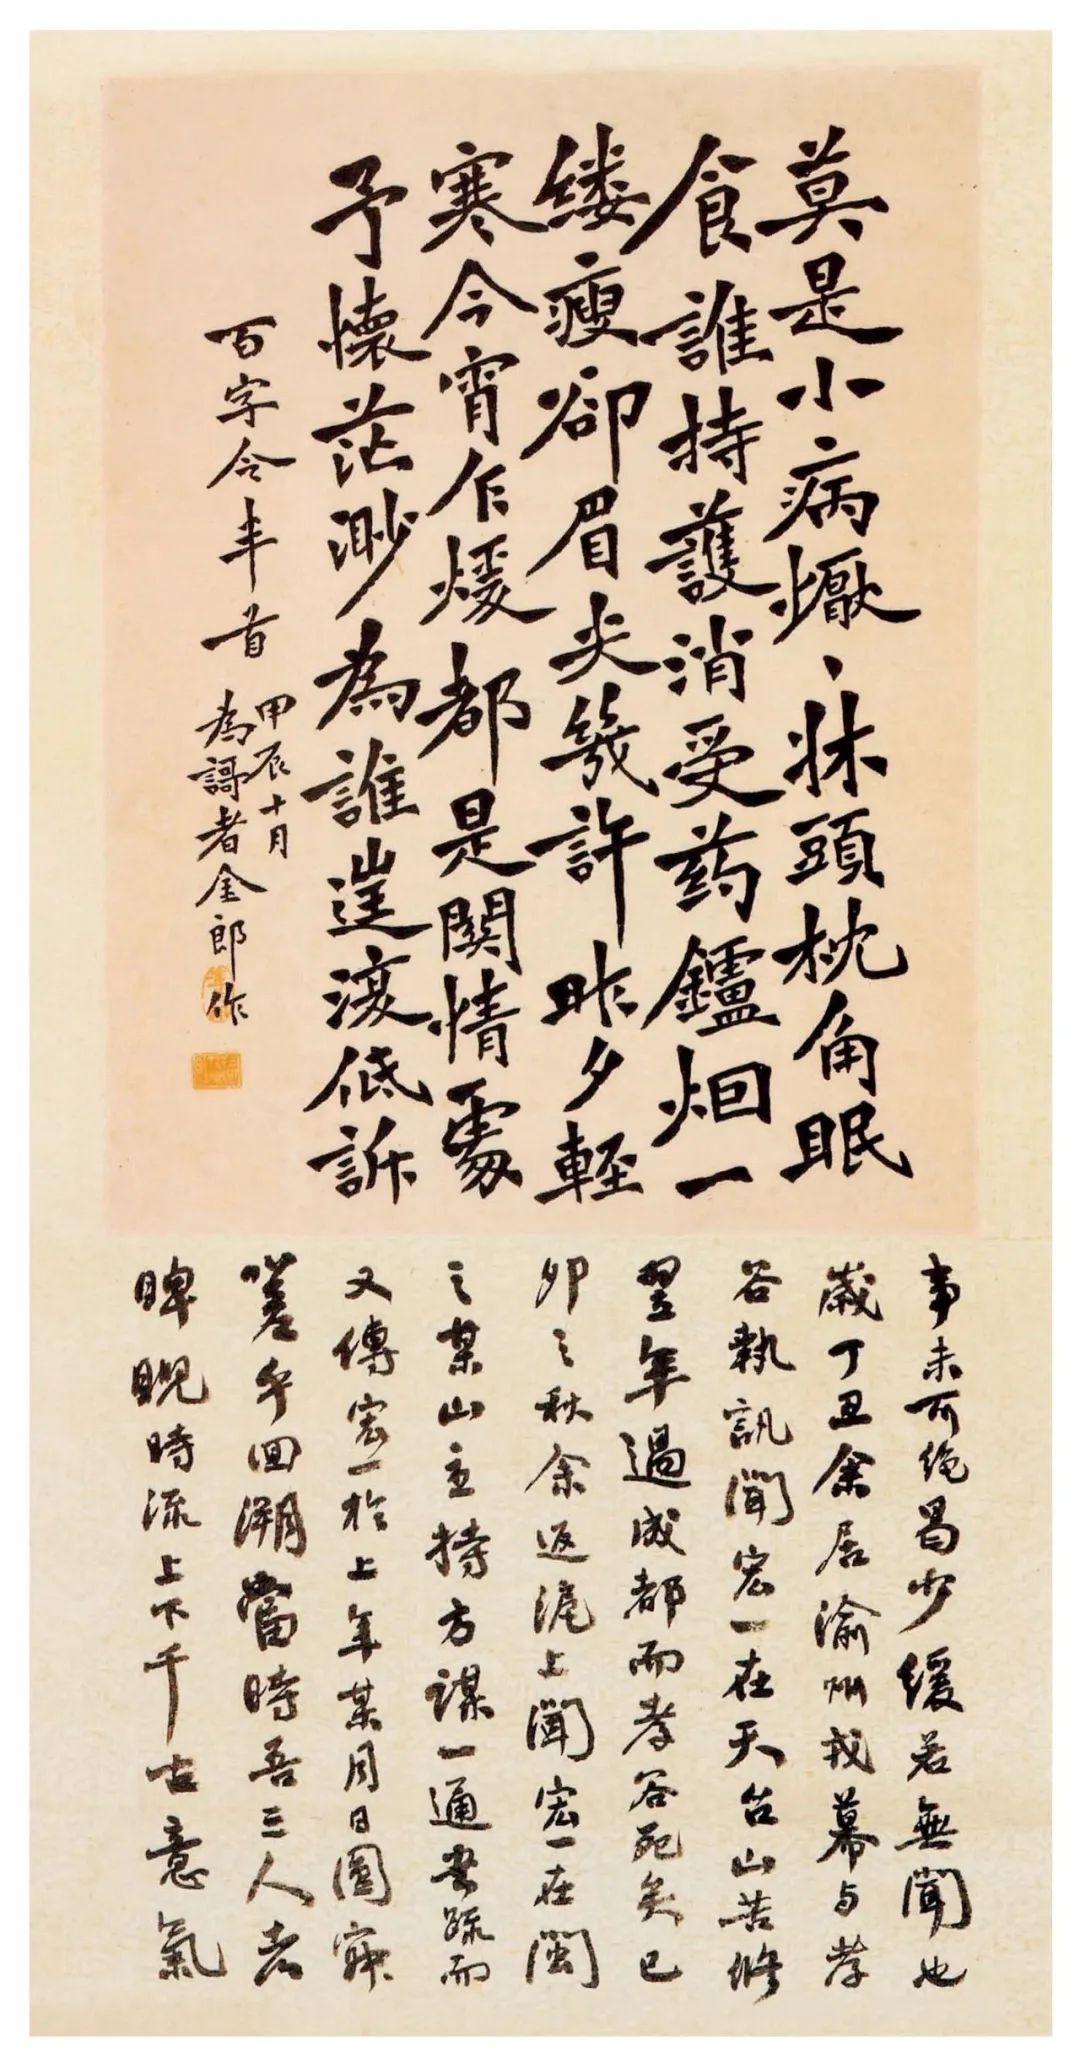 莫是小病懨、牀頭枕角眠
食誰持護消受药鑪烟一
縷瘦郤眉尖幾許昨夕輕
寒今宵乍煖都是関情處
予懷茫渺為誰遑淚低訴
百字令半首
甲辰十月
為謌者金郎作
事未可絶曷少缓若無聞也
嵗丁丑余居渝州戎幕与孝
谷執訊聞宏一在天台山苦修
翌年過成都而孝谷死矣已
卯之秋余返滬上聞宏一在閩
之某山主持方謀一通音疏而
又傳宏一於上年某月日圓寂
嗟乎回溯當時吾三人者
睥睨時流上下千古意氣